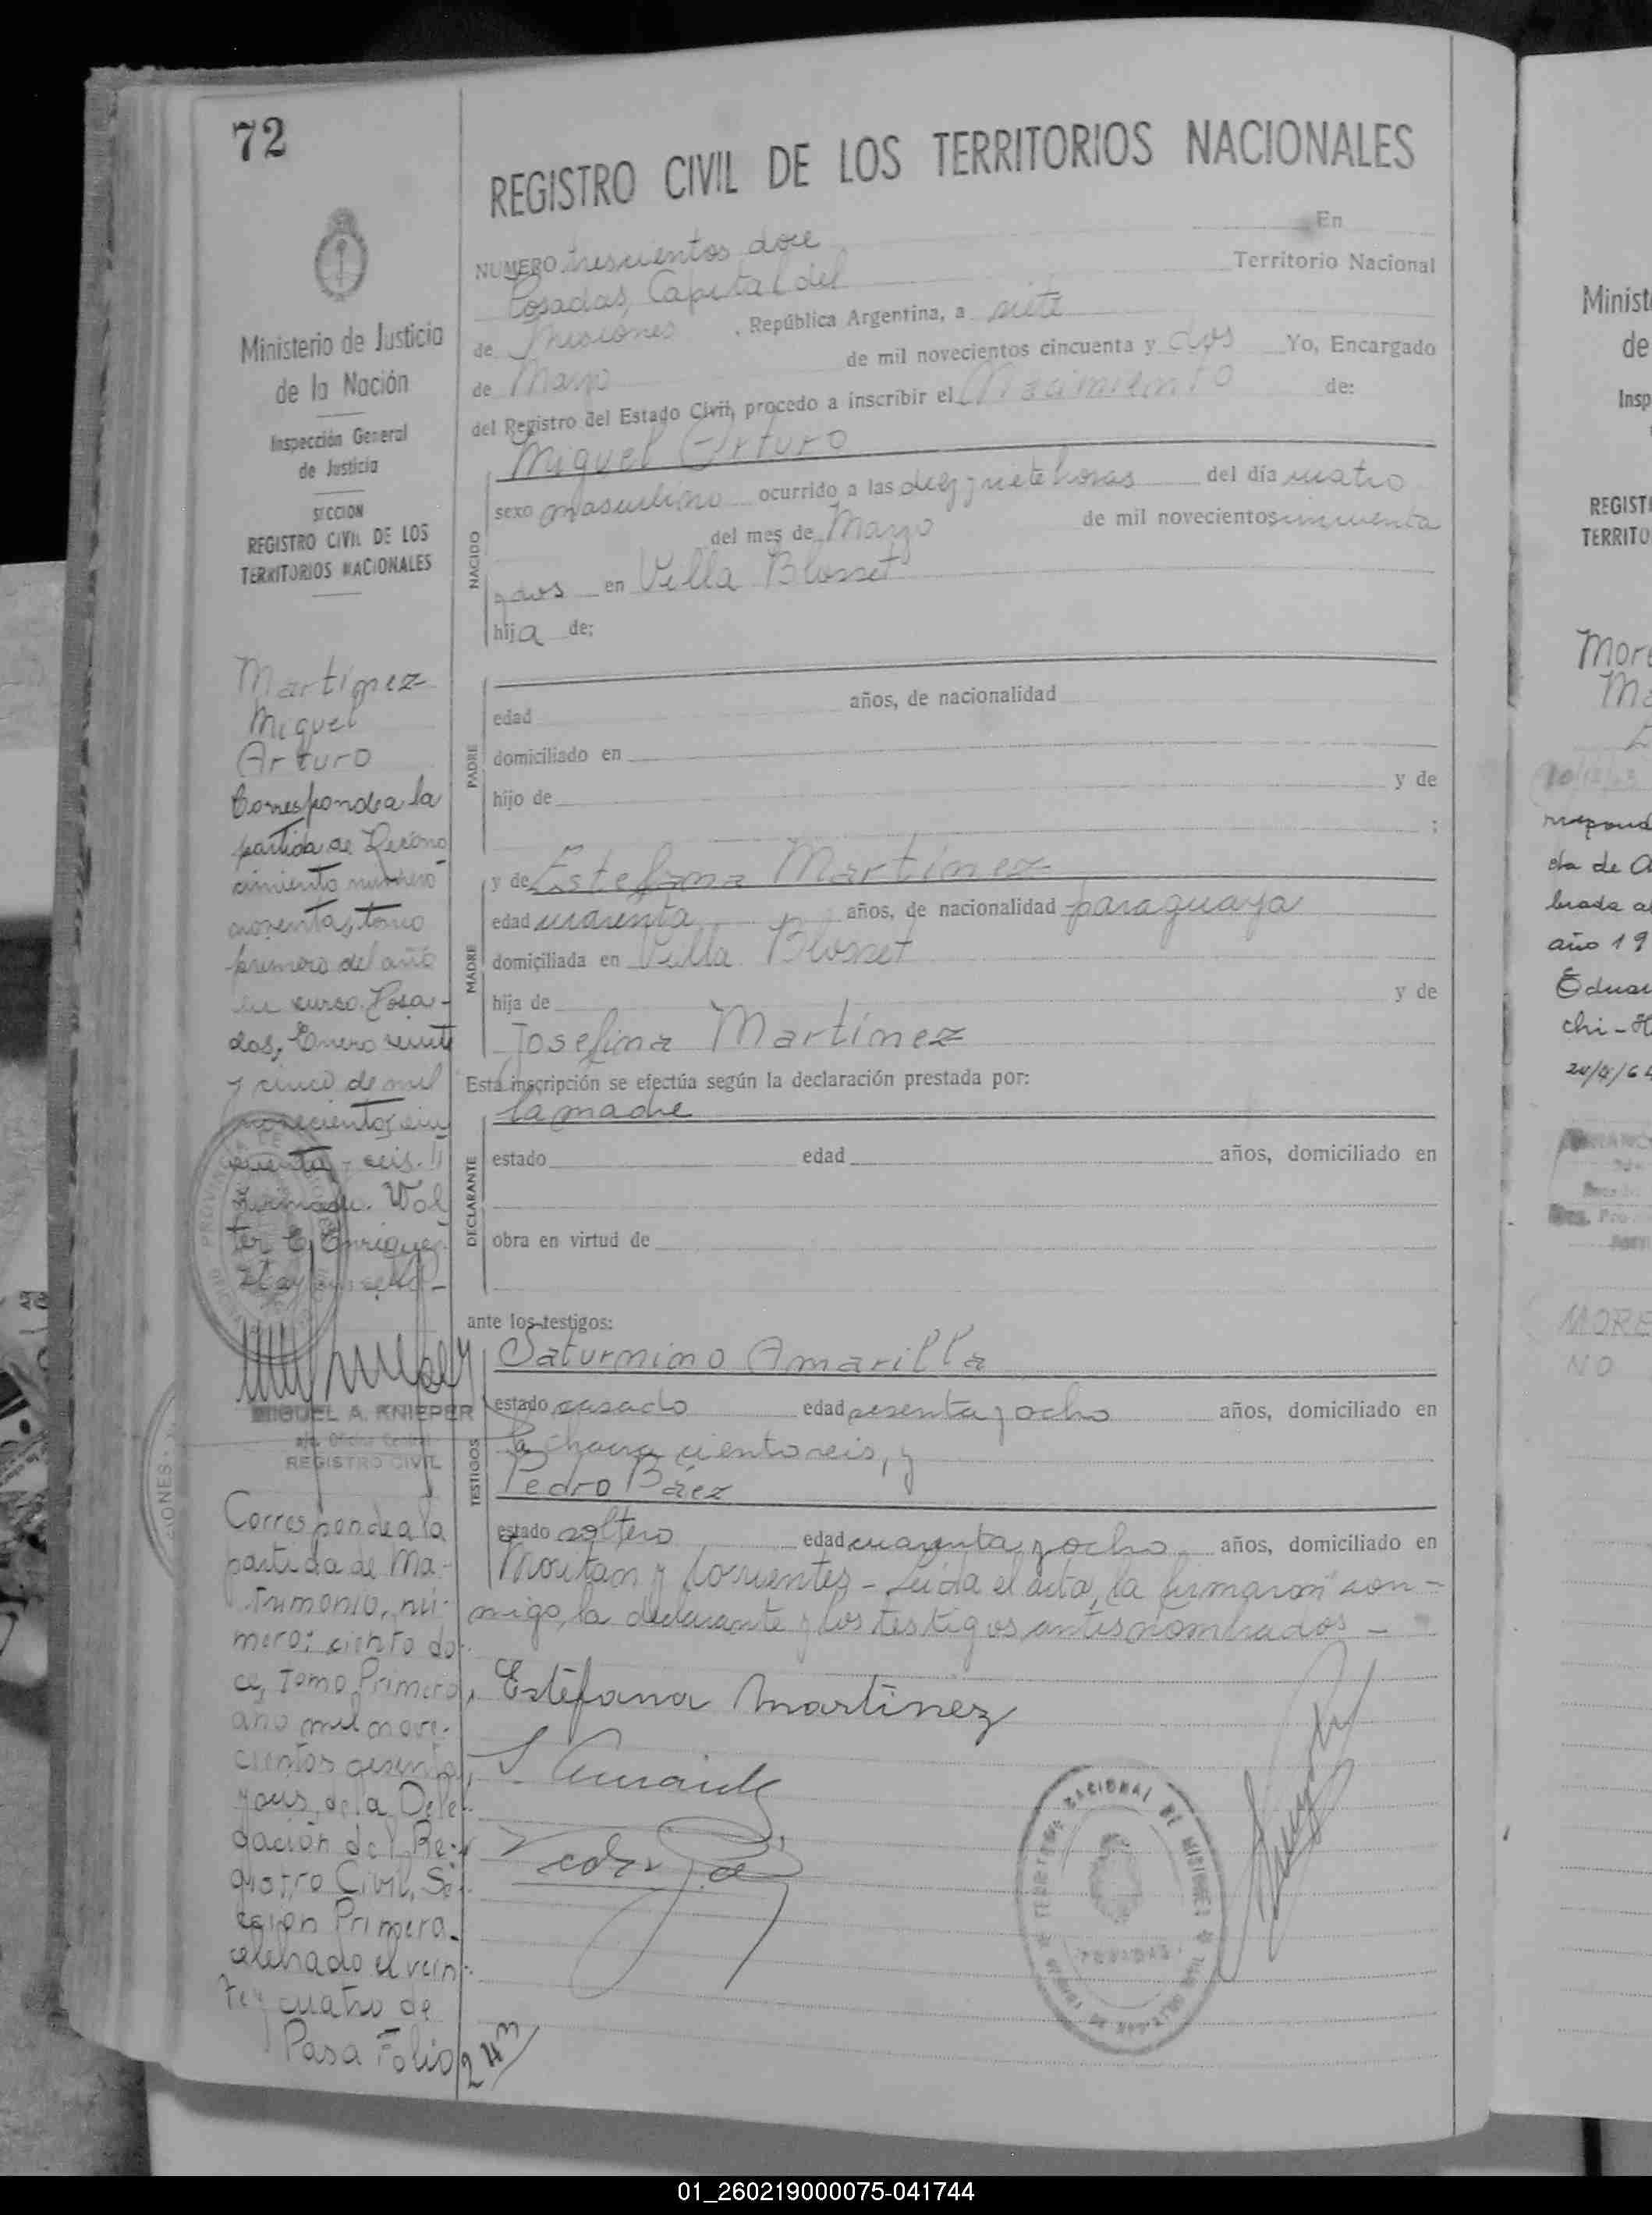 72
REGISTRO CIVIL DE LOS TERRITORIOS NACIONALES
Ministerio de Justicia
de la Nación
Inspección General
de Justicia
SECCION
REGISTRO CIVIL DE LOS
TERRITORIOS NACIONALES
NUMERO trescientos doce En
Posadas, Capital del Territorio Nacional
de Misiones, República Argentina, a siete
de Marzo de mil novecientos cincuenta y dos Yo, Encargado
del Registro del Estado Civil, procedo a inscribir el Nacimiento de:
NACIDO
Miguel Arturo
sexo masculino ocurrido a las diez y siete horas del día cuatro
del mes de Marzo de mil novecientos cincuenta
y dos en Villa Blosset
hija de:
PADRE
edad años, de nacionalidad
domiciliado en
hijo de y de
;
MADRE
y de Estefana Martínez
edad cuarenta años, de nacionalidad paraguaya
domiciliada en Villa Blosset
hija de y de
Josefina Martínez
Esta inscripción se efectúa según la declaración prestada por:
DECLARANTE
la madre
estado edad años, domiciliado en
obra en virtud de
ante los testigos:
TESTIGOS
Saturnino Amarilla
estado casado edad sesenta y ocho años, domiciliado en
la chacra ciento seis, y
Pedro Báez
estado soltero edad cuarenta y ocho años, domiciliado en
y Corrientes - Leída el acta, la firmaron con-
migo, la declarante y los testigos antes nombrados -
Estefana Martínez
Martínez
Miguel
Arturo
Corresponde a la
partida de Recono
cimiento número
noventa, tomo
primero del año
en curso. Posa-
das, Enero veinte
y cinco de mil
novecientos cin
cuenta y seis.
Firmado. Wal
ter E. Enrique
MIGUEL A. KNIEPER
REGISTRO CIVIL
Corresponde a la
partida de Ma-
trimonio, nú-
mero: ciento do-
ce, Tomo Primero,
año mil nove-
cientos sesenta
y dos, de la Dele-
gación del Re-
gistro Civil, Se-
cción Primera.
celebrado el vein-
te y cuatro de
Pasa Folio 243
TERRITORIO NACIONAL DE MISIONES
POSADAS
Minist
de
Insp
REGIST
TERRITO
More
Ma
da de
año 19
Eduar
chi - H
20/4/64
MORE
NO
01_260219000075-041744